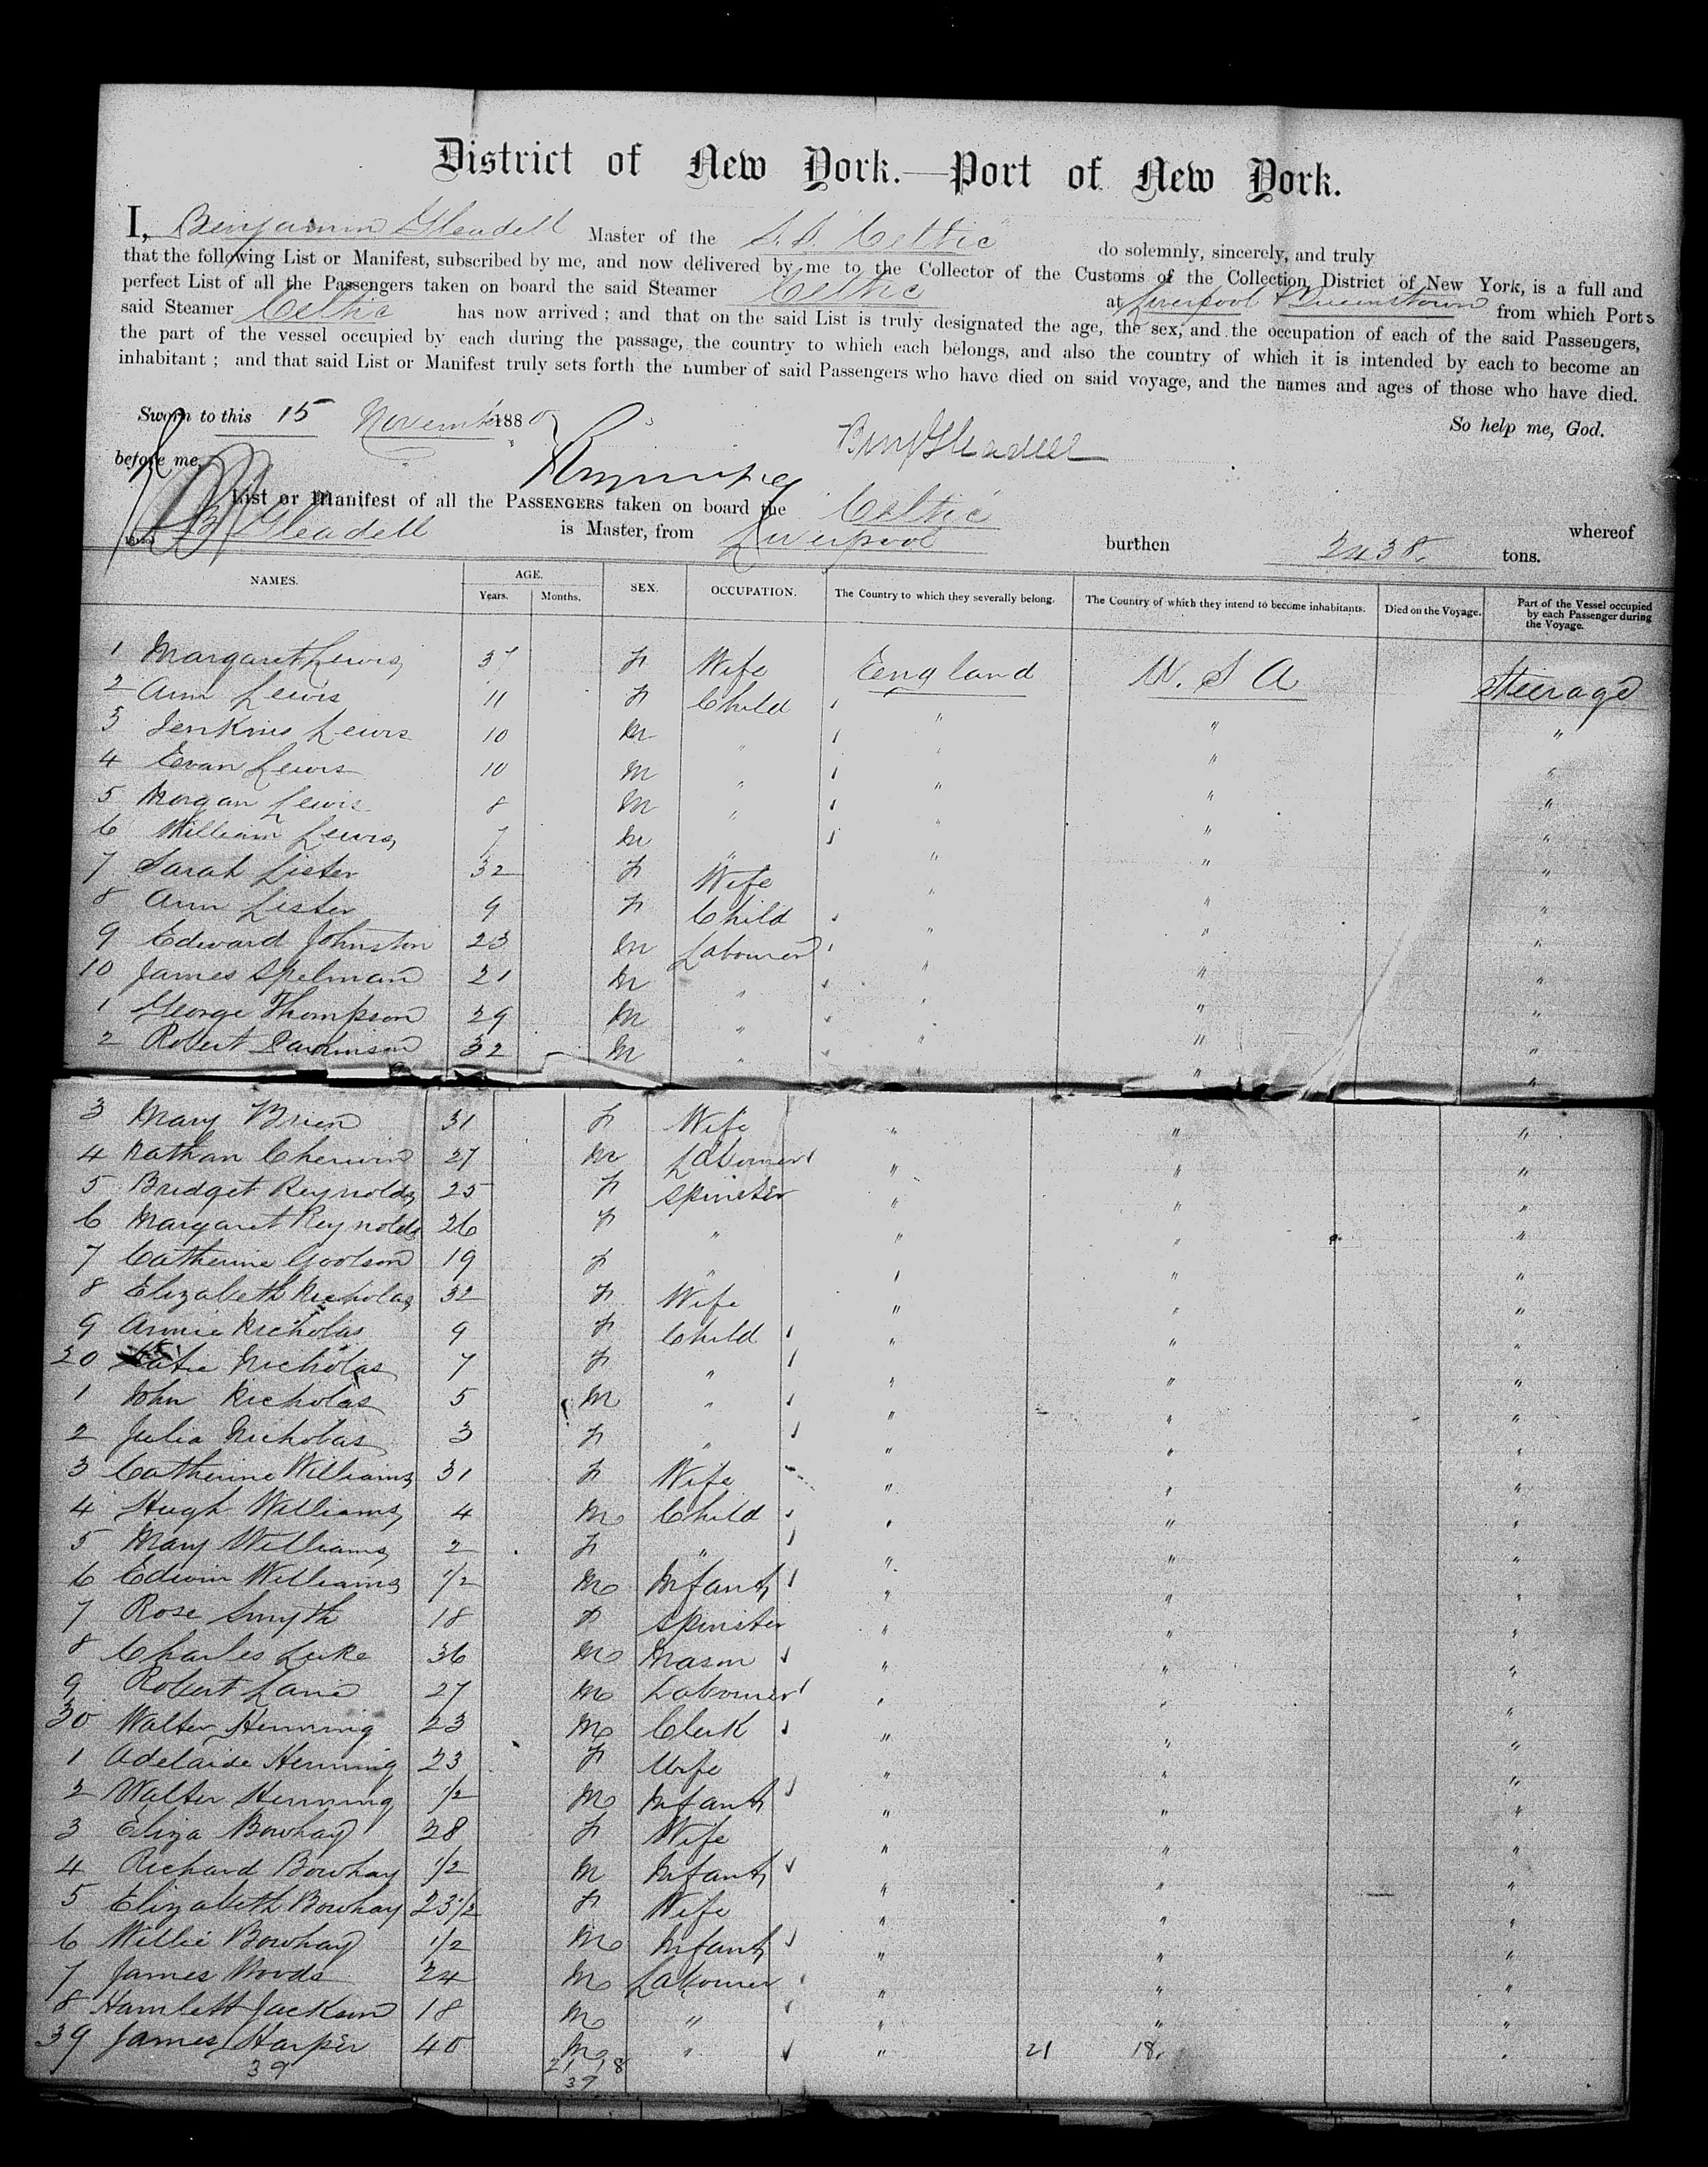 District of New York.—Port of New York.
I, Benjamin Gleadell Master of the S.S. Celtic do solemnly, sincerely, and truly
that the following List or Manifest, subscribed by me, and now delivered by me to the Collector of the Customs of the Collection District of New York, is a full and
perfect List of all the Passengers taken on board the said Steamer Celtic at Liverpool & Queenstown from which Ports
said Steamer Celtic has now arrived; and that on the said List is truly designated the age, the sex, and the occupation of each of the said Passengers,
the part of the vessel occupied by each during the passage, the country to which each belongs, and also the country of which it is intended by each to become an
inhabitant; and that said List or Manifest truly sets forth the number of said Passengers who have died on said voyage, and the names and ages of those who have died.
Sworn to this 15 November 1880 So help me, God.
before me, Benj Gleadell
List or Manifest of all the PASSENGERS taken on board the Celtic whereof
B Gleadell is Master, from Liverpool burthen 2438 tons.
NAMES. AGE. Years. Months. SEX. OCCUPATION. The Country to which they severally belong. The Country of which they intend to become inhabitants. Died on the Voyage. Part of the Vessel occupied by each Passenger during the Voyage.
1 Margaret Lewis 37 F Wife England U.S A Steerage
2 Ann Lewis 11 F Child " " "
3 Jenkins Lewis 10 M " " " "
4 Evan Lewis 10 M " " " "
5 Morgan Lewis 8 M " " " "
6 William Lewis 7 M " " " "
7 Sarah Lister 32 F Wife " " "
8 Ann Lister 9 F Child " " "
9 Edward Johnston 23 M Labourer " " "
10 James Spelman 21 M " " " "
1 George Thompson 29 M " " " "
2 Robert Parkinson 32 M " " " "
3 Mary Brien 31 F Wife " " "
4 Nathan Cherwin 27 M Labourer " " "
5 Bridget Reynolds 25 F Spinster " " "
6 Margaret Reynolds 26 F " " " "
7 Catherine Goolson 19 F " " " "
8 Elizabeth Nicholas 32 F Wife " " "
9 Annie Nicholas 9 F Child " " "
20 Katie Nicholas 7 F " " " "
1 John Nicholas 5 M " " " "
2 Julia Nicholas 3 F " " " "
3 Catherine Williams 31 F Wife " " "
4 Hugh Williams 4 M Child " " "
5 Mary Williams 2 F " " " "
6 Edwin Williams 1/2 M Infant " " "
7 Rose Smyth 18 F Spinster " " "
8 Charles Luke 36 M Mason " " "
9 Robert Lane 27 M Labourer " " "
30 Walter Henning 23 M Clerk " " "
1 Adelaide Henning 23 F Wife " " "
2 Walter Henning 1/2 M Infant " " "
3 Eliza Bowhay 28 F Wife " " "
4 Richard Bowhay 1/2 M Infant " " "
5 Elizabeth Bowhay 23 1/2 F Wife " " "
6 Willie Bowhay 1/2 M Infant " " "
7 James Woods 24 M Labourer " " "
8 Hamlett Jackson 18 M " " " "
39 James Harper 40 M " " 21 18 "
39 21 18
39